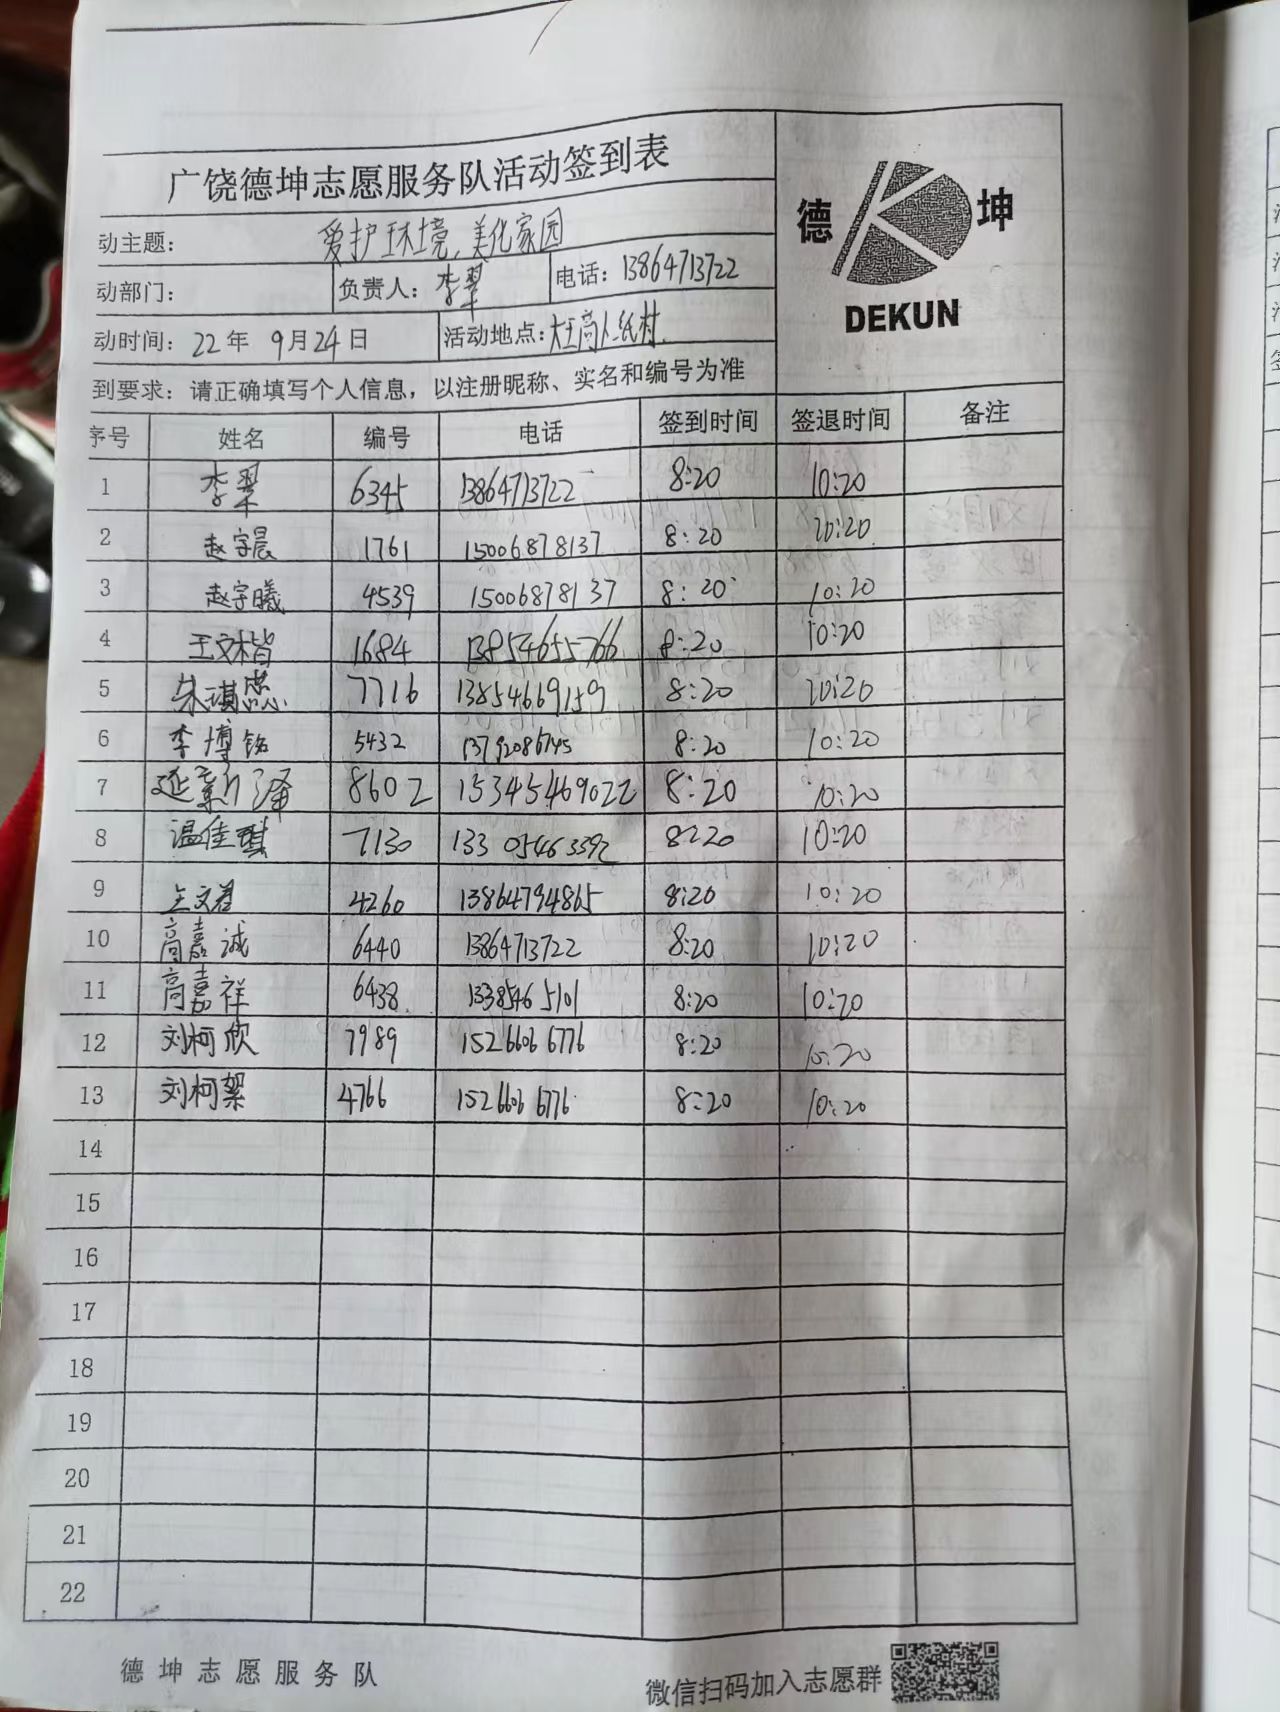 广饶德坤志愿服务队活动签到表
德 坤
DEKUN
动主题： 爱护环境,美化家园
动部门： 负责人：李翠 电话：13864713722
动时间：22年 9月24日 活动地点：大王高卜纸村
到要求：请正确填写个人信息，以注册昵称、实名和编号为准
序号 姓名 编号 电话 签到时间 签退时间 备注
1 李翠 6345 13864713722 8:20 10:20
2 赵宇晨 1761 15006878137 8:20 10:20
3 赵宇曦 4539 15006878137 8:20 10:20
4 王文楷 1684 13854655766 8:20 10:20
5 朱琪 7716 13854669159 8:20 10:20
6 李博铭 5432 13792086745 8:20 10:20
7 延新泽 8602 15345469022 8:20 10:20
8 温佳琪 7130 133 05463392 8:20 10:20
9 王文君 4260 13864794865 8:20 10:20
10 高嘉诚 6440 13864713722 8:20 10:20
11 高嘉祥 6438 1338546 5101 8:20 10:20
12 刘柯欣 7989 1526606 6776 8:20 10:20
13 刘柯絮 4766 1526606 6776 8:20 10:20
14
15
16
17
18
19
20
21
22
德坤志愿服务队
微信扫码加入志愿群